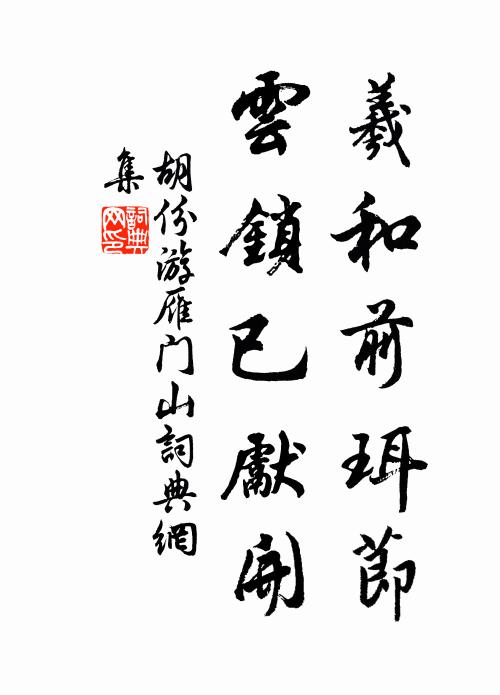 羲和前珥節
雲鎖已獻開
胡份游雁门山詞典網
集
詞典网印